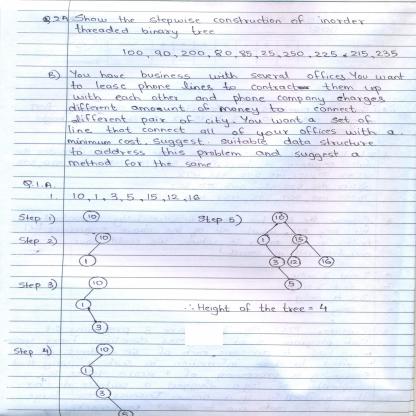 Q.2A Show the stepwise construction of inorder
threaded binary tree
100, 90, 200, 80, 85, 25, 250, 225, 215, 235
B) You have business with several offices. You want
to lease phone lines to contract them up
with each other and phone company charges
different amount of money to connect
different pair of city. You want a set of
line that connect all of your offices with a
minimum cost. suggest suitable data structure
to address this problem and suggest a
method for the same.
Q.1.A.
1. 10, 1, 3, 5, 15, 12, 16
Step 1) 10
Step 2) 10
1
Step 3) 10
1
3
Step 4) 10
1
3
5
Step 5) 10
1 15
3 12 16
5
∴ Height of the tree = 4